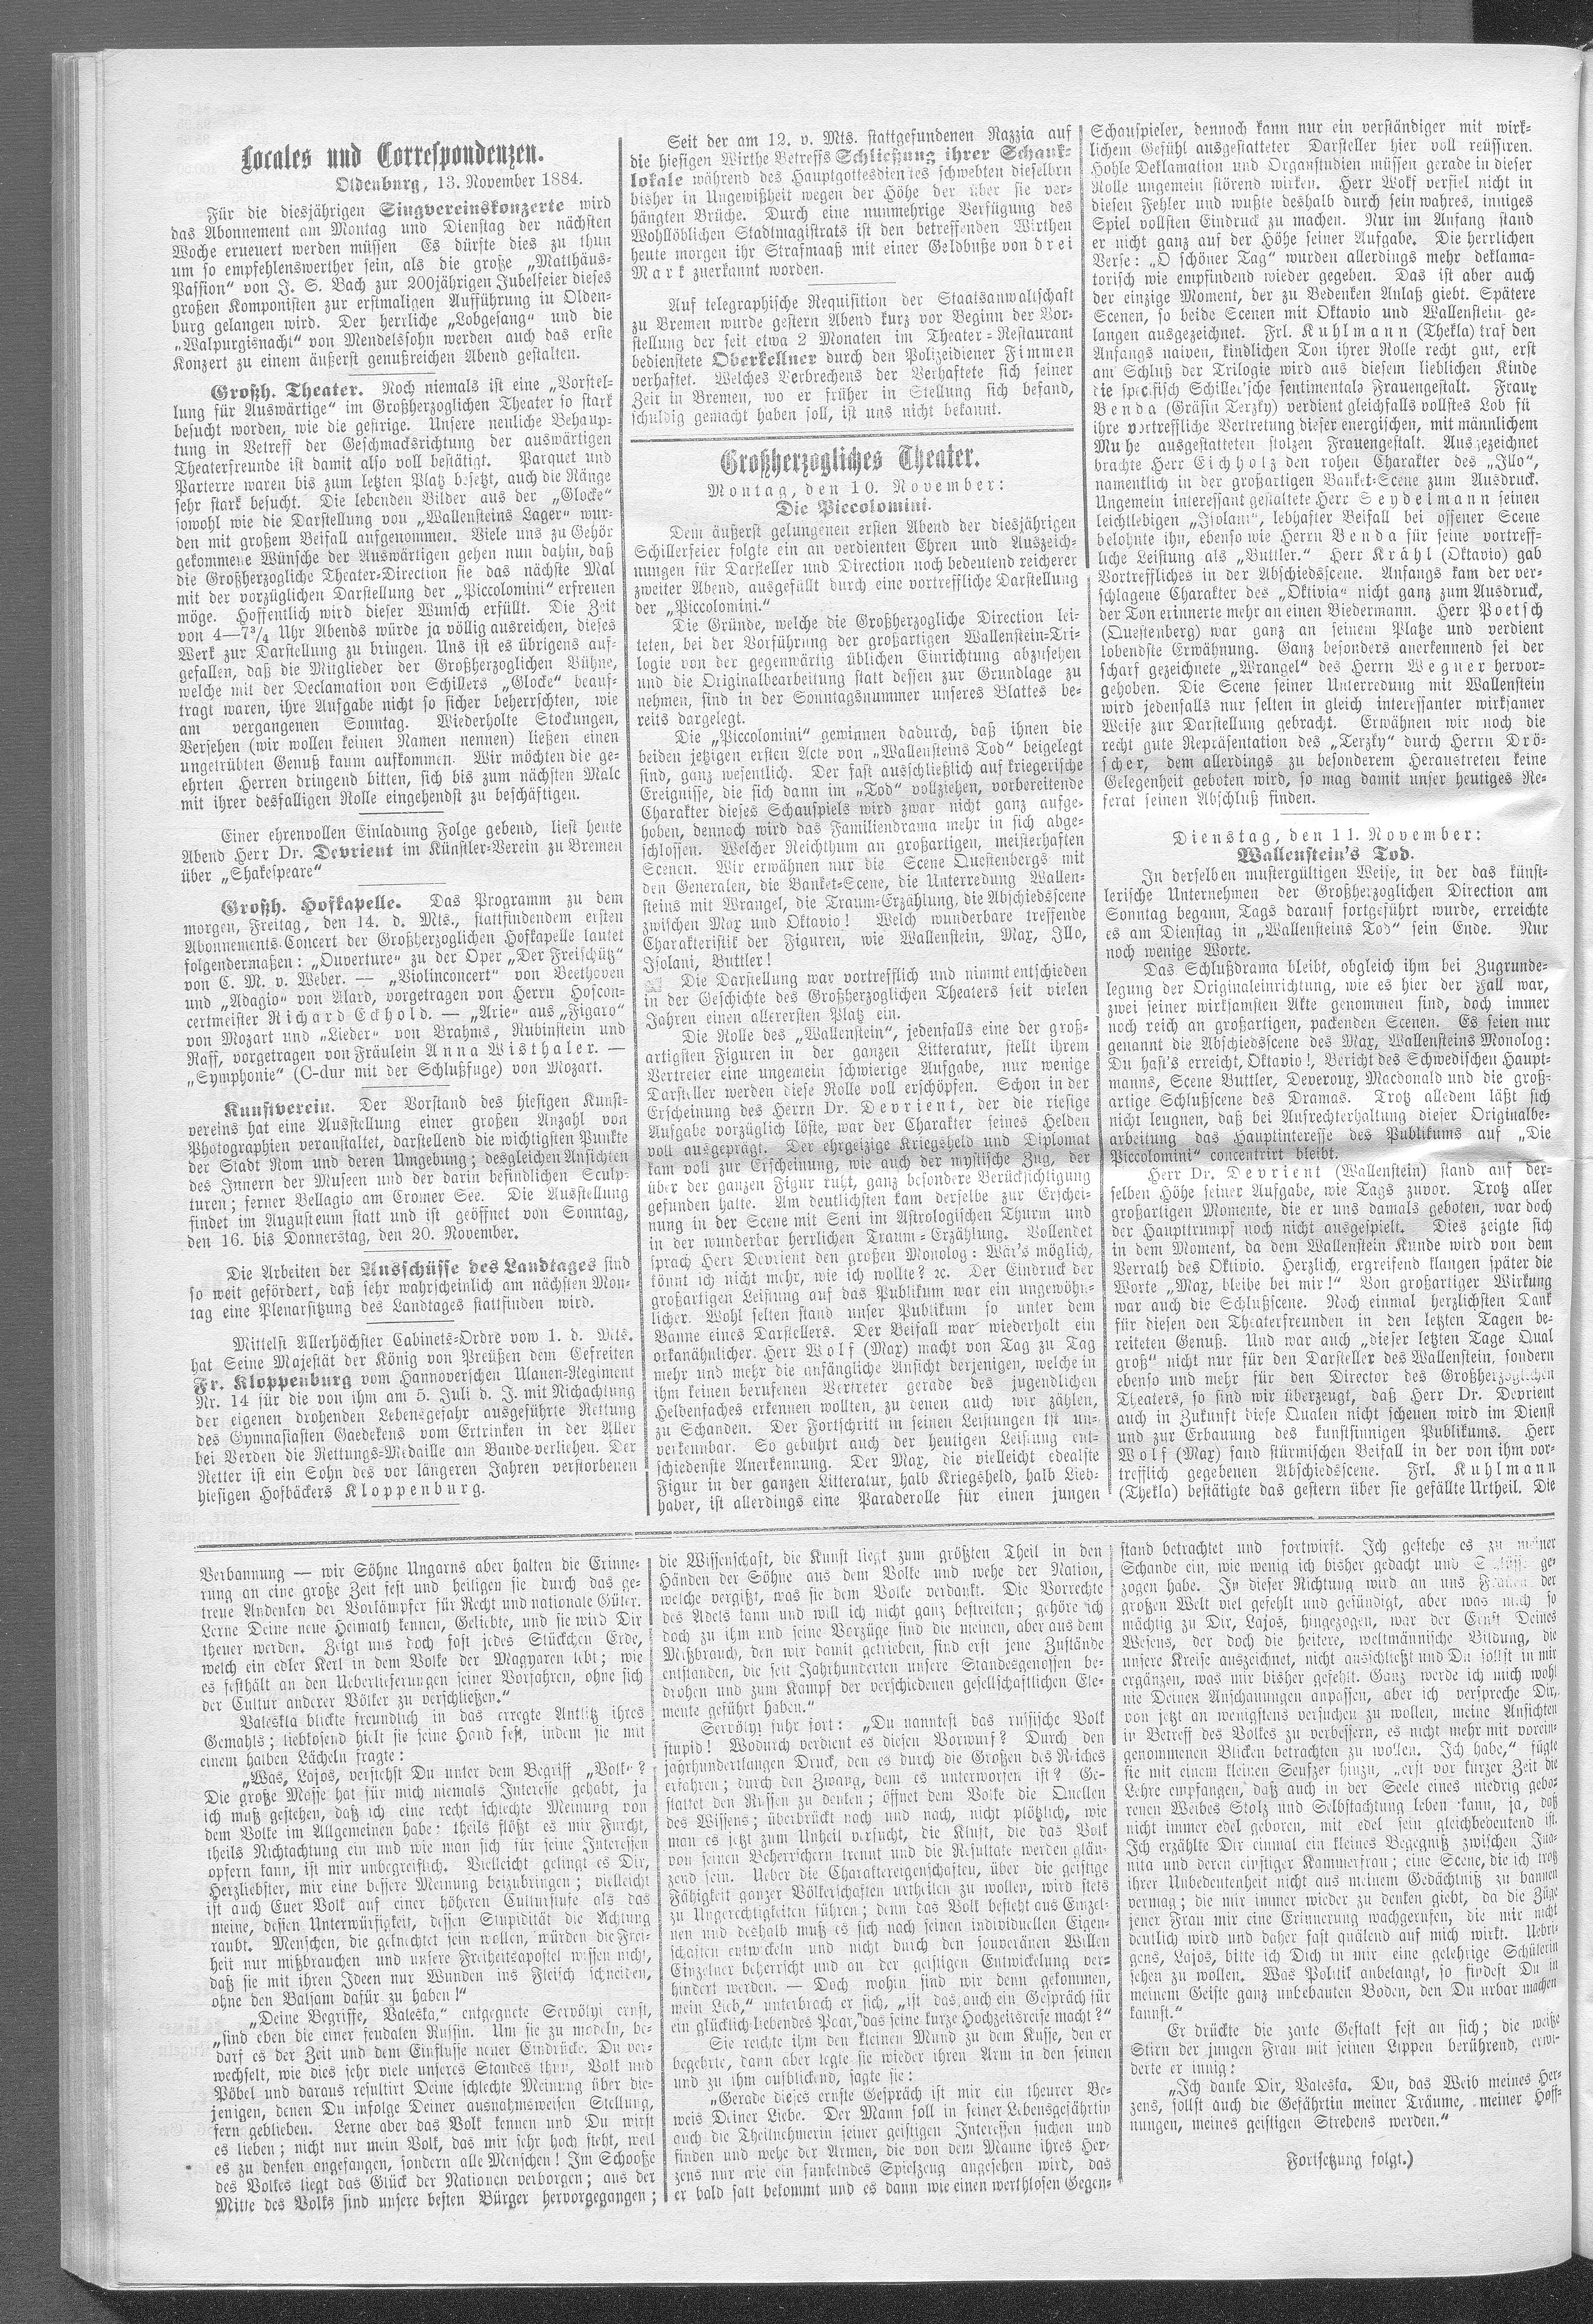 Locales und Correspondenzen.
Oldenburg, 13. November 1884.
Für die diesjährigen Singvereinskonzerte wird
das Abonnement am Montag und Dienstag der nächsten
Woche erneuert werden müssen Es dürfte dies zu thun
um so empfehlenswerther sein, als die große „Matthäus-
Passion“ von J. S. Bach zur 200jährigen Jubelfeier dieses
großen Komponisten zur erstmaligen Aufführung in Olden-
burg gelangen wird. Der herrliche „Lobgesang“ und die
„Walpurgisnacht“ von Mendelssohn werden auch das erste
Konzert zu einem äußerst genußreichen Abend gestalten.
Großh. Theater. Noch niemals ist eine „Vorstel-
lung für Auswärtige“ im Großherzoglichen Theater so stark
besucht worden, wie die gestrige. Unsere neuliche Behaup-
tung in Betreff der Geschmacksrichtung der auswärtigen
Theaterfreunde ist damit also voll bestätigt. Parquet und
Parterre waren bis zum letzten Platz besetzt, auch die Ränge
sehr stark besucht. Die lebenden Bilder aus der „Glocke“
sowohl wie die Darstellung von „Wallensteins Lager“ wur-
den mit großem Beifall aufgenommen. Viele uns zu Gehör
gekommene Wünsche der Auswärtigen gehen nun dahin, daß
die Großherzogliche Theater-Direction sie das nächste Mal
mit der vorzüglichen Darstellung der „Piccolomini“ erfreuen
möge. Hoffentlich wird dieser Wunsch erfüllt. Die Zeit
von 4—7¾ Uhr Abends würde ja völlig ausreichen, dieses
Werk zur Darstellung zu bringen. Uns ist es übrigens auf-
gefallen, daß die Mitglieder der Großherzoglichen Bühne,
welche mit der Declamation von Schillers „Glocke“ beauf-
tragt waren, ihre Aufgabe nicht so sicher beherrschten, wie
am vergangenen Sonntag. Wiederholte Stockungen,
Versehen (wir wollen keinen Namen nennen) ließen einen
ungetrübten Genuß kaum aufkommen. Wir möchten die ge-
ehrten Herren dringend bitten, sich bis zum nächsten Male
mit ihrer desfallsigen Rolle eingehendst zu beschäftigen.
Einer ehrenvollen Einladung Folge gebend, liest heute
Abend Herr Dr. Devrient im Künstler-Verein zu Bremen
über „Shakespeare“
Großh. Hofkapelle. Das Programm zu dem
morgen, Freitag, den 14. d. Mts., stattfindendem ersten
Abonnements-Concert der Großherzoglichen Hofkapelle lautet
folgendermaßen: „Ouverture“ zu der Oper „Der Freischütz“
von C. M. v. Weber. — „Violinconcert“ von Beethoven
und „Adagio“ von Alard, vorgetragen von Herrn Hofcon-
certmeister Richard Eckhold. — „Arie“ aus „Figaro“
von Mozart und „Lieder“ von Brahms, Rubinstein und
Raff, vorgetragen von Fräulein Anna Wisthaler. —
„Symphonie“ (C-dur mit der Schlußfuge) von Mozart.
Kunstverein. Der Vorstand des hiesigen Kunst-
vereins hat eine Ausstellung einer großen Anzahl von
Photographien veranstaltet, darstellend die wichtigsten Punkte
der Stadt Rom und deren Umgebung; desgleichen Ansichten
des Innern der Museen und der darin befindlichen Sculp-
turen; ferner Bellagio am Cromer See. Die Ausstellung
findet im Augusteum statt und ist geöffnet von Sonntag,
den 16. bis Donnerstag, den 20. November.
Die Arbeiten der Ausschüsse des Landtages sind
so weit gefördert, daß sehr wahrscheinlich am nächsten Mon-
tag eine Plenarsitzung des Landtages stattfinden wird.
Mittelst Allerhöchster Cabinets-Ordre vom 1. d. Mts.
hat Seine Majestät der König von Preußen dem Gefreiten
Fr. Kloppenburg vom Hannoverschen Ulanen-Regiment
Nr. 14 für die von ihm am 5. Juli d. J. mit Nichachtung
der eigenen drohenden Lebensgefahr ausgeführte Rettung
des Gymnasiasten Gaedekens vom Ertrinken in der Aller
bei Verden die Rettungs-Medaille am Bande verliehen. Der
Retter ist ein Sohn des vor längeren Jahren verstorbenen
hiesigen Hofbäckers Kloppenburg.
Seit der am 12. v. Mts. stattgefundenen Razzia auf
die hiesigen Wirthe betreffs Schließung ihrer Schank-
lokale während des Hauptgottesdienstes schwebten dieselben
bisher in Ungewißheit wegen der Höhe der über sie ver-
hängten Brüche. Durch eine nunmehrige Verfügung des
Wohllöblichen Stadtmagistrats ist den betreffenden Wirthen
heute morgen ihr Strafmaaß mit einer Geldbuße von drei
Mark zuerkannt worden.
Auf telegraphische Requisition der Staatsanwaltschaft
zu Bremen wurde gestern Abend kurz vor Beginn der Vor-
stellung der seit etwa 2 Monaten im Theater-Restaurant
bedienstete Oberkellner durch den Polizeidiener Fimmen
verhaftet. Welches Verbrechens der Verhaftete sich seiner
Zeit in Bremen, wo er früher in Stellung sich befand,
schuldig gemacht haben soll, ist uns nicht bekannt.
Großherzogliches Theater.
Montag, den 10. November:
Die Piccolomini.
Dem äußerst gelungenen ersten Abend der diesjährigen
Schillerfeier folgte ein an verdienten Ehren und Auszeich-
nungen für Darsteller und Direction noch bedeutend reicherer
zweiter Abend, ausgefüllt durch eine vortreffliche Darstellung
der „Piccolomini.“
Die Gründe, welche die Großherzogliche Direction lei-
teten, bei der Vorführung der großartigen Wallenstein-Tri-
logie von der gegenwärtig üblichen Einrichtung abzusehen
und die Originalbearbeitung statt dessen zur Grundlage zu
nehmen, sind in der Sonntagsnummer unseres Blattes be-
reits dargelegt.
Die „Piccolomini“ gewinnen dadurch, daß ihnen die
beiden jetzigen ersten Acte von „Wallensteins Tod“ beigelegt
sind, ganz wesentlich. Der fast ausschließlich auf kriegerische
Ereignisse, die sich dann im „Tod“ vollziehen, vorbereitende
Charakter dieses Schauspiels wird zwar nicht ganz aufge-
hoben, dennoch wird das Familiendrama mehr in sich abge-
schlossen. Welcher Reichthum an großartigen, meisterhaften
Scenen. Wir erwähnen nur die Scene Questenbergs mit
den Generalen, die Banket-Scene, die Unterredung Wallen-
steins mit Wrangel, die Traum-Erzählung, die Abschiedsscene
zwischen Max und Oktavio! Welch wunderbare treffende
Charakteristik der Figuren, wie Wallenstein, Max, Illo,
Isolani, Buttler!
Die Darstellung war vortrefflich und nimmt entschieden
in der Geschichte des Großherzoglichen Theaters seit vielen
Jahren einen allerersten Platz ein.
Die Rolle des „Wallenstein“, jedenfalls eine der groß-
artigsten Figuren in der ganzen Litteratur, stellt ihrem
Vertreter eine ungemein schwierige Aufgabe, nur wenige
Darsteller werden diese Rolle voll erschöpfen. Schon in der
Erscheinung des Herrn Dr. Devrient, der die riesige
Aufgabe vorzüglich löste, war der Charakter seines Helden
voll ausgeprägt. Der ehrgeizige Kriegsheld und Diplomat
kam voll zur Erscheinung, wie auch der mystische Zug, der
über der ganzen Figur ruht, ganz besondere Berücksichtigung
gefunden hatte. Am deutlichsten kam derselbe zur Erschei-
nung in der Scene mit Seni im Astrologischen Thurm und
in der wunderbar herrlichen Traum-Erzählung. Vollendet
sprach Herr Devrient den großen Monolog: Wär's möglich,
könnt ich nicht mehr, wie ich wollte? 2c. Der Eindruck der
großartigen Leistung auf das Publikum war ein ungewöhn-
licher. Wohl selten stand unser Publikum so unter dem
Banne eines Darstellers. Der Beifall war wiederholt ein
orkanähnlicher. Herr Wolf (Max) macht von Tag zu Tag
mehr und mehr die anfängliche Ansicht derjenigen, welche in
ihm keinen berufenen Vertreter gerade des jugendlichen
Heldenfaches erkennen wollten, zu denen auch wir zählen,
zu Schanden. Der Fortschritt in seinen Leistungen ist un-
verkennbar. So gebührt auch der heutigen Leistung ent-
schiedenste Anerkennung. Der Max, die vielleicht edealste
Figur in der ganzen Litteratur, halb Kriegsheld, halb Lieb-
haber, ist allerdings eine Paraderolle für einen jungen
Schauspieler, dennoch kann nur ein verständiger mit wirk-
lichem Gefühl ausgestatteter Darsteller hier voll reüssiren.
Hohle Deklamation und Organstudien müssen gerade in dieser
Rolle ungemein störend wirken. Herr Wolf verfiel nicht in
diesen Fehler und wußte deshalb durch sein wahres, inniges
Spiel vollsten Eindruck zu machen. Nur im Anfang stand
er nicht ganz auf der Höhe seiner Aufgabe. Die herrlichen
Verse: „O schöner Tag“ wurden allerdings mehr deklama-
torisch wie empfindend wieder gegeben. Das ist aber auch
der einzige Moment, der zu Bedenken Anlaß giebt. Spätere
Scenen, so beide Scenen mit Oktavio und Wallenstein ge-
langen ausgezeichnet. Frl. Kuhlmann (Thekla) traf den
Anfangs naiven, kindlichen Ton ihrer Rolle recht gut, erst
am Schluß der Trilogie wird aus diesem lieblichen Kinde
die specifisch Schiller'sche sentimentale Frauengestalt. Fraur
Benda (Gräfin Terzky) verdient gleichfalls vollstes Lob fü
ihre vortreffliche Vertretung dieser energischen, mit männlichem
Muthe ausgestatteten stolzen Frauengestalt. Ausgezeichnet
brachte Herr Eichholz den rohen Charakter des „Illo“,
namentlich in der großartigen Banket-Scene zum Ausdruck.
Ungemein interessant gestaltete Herr Seydelmann seinen
leichtlebigen „Isolani“, lebhafter Beifall bei offener Scene
belohnte ihn, ebenso wie Herrn Benda für seine vortreff-
liche Leistung als „Buttler.“ Herr Krähl (Oktavio) gab
Vortreffliches in der Abschiedsscene. Anfangs kam der ver-
schlagene Charakter des „Oktivia“ nicht ganz zum Ausdruck,
der Ton erinnerte mehr an einen Biedermann. Herr Poetsch
(Questenberg) war ganz an seinem Platze und verdient
lobendste Erwähnung. Ganz besonders anerkennend sei der
scharf gezeichnete „Wrangel“ des Herrn Wegner hervor-
gehoben. Die Scene seiner Unterredung mit Wallenstein
wird jedenfalls nur selten in gleich interessanter wirksamer
Weise zur Darstellung gebracht. Erwähnen wir noch die
recht gute Repräsentation des „Terzky“ durch Herrn Drö-
scher, dem allerdings zu besonderem Heraustreten keine
Gelegenheit geboten wird, so mag damit unser heutiges Re-
ferat seinen Abschluß finden.
Dienstag, den 11. November:
Wallenstein's Tod.
In derselben mustergültigen Weise, in der das künst-
lerische Unternehmen der Großherzoglichen Direction am
Sonntag begann, Tags darauf fortgeführt wurde, erreichte
es am Dienstag in „Wallensteins Tod“ sein Ende. Nur
noch wenige Worte.
Das Schlußdrama bleibt, obgleich ihm bei Zugrunde-
legung der Originaleinrichtung, wie es hier der Fall war,
zwei seiner wirksamsten Akte genommen sind, doch immer
noch reich an großartigen, packenden Scenen. Es seien nur
genannt die Abschiedsscene des Max, Wallensteins Monolog:
Du hast's erreicht, Oktavio!, Bericht des Schwedischen Haupt-
manns, Scene Buttler, Deveroux, Macdonald und die groß-
artige Schlußscene des Dramas. Trotz alledem läßt sich
nicht leugnen, daß bei Aufrechterhaltung dieser Originalbe-
arbeitung das Hauptinteresse des Publikums auf „Die
Piccolomini“ concentrirt bleibt.
Herr Dr. Devrient (Wallenstein) stand auf der-
selben Höhe seiner Aufgabe, wie Tags zuvor. Trotz aller
großartigen Momente, die er uns damals geboten, war doch
der Haupttrumpf noch nicht ausgespielt. Dies zeigte sich
in dem Moment, da dem Wallenstein Kunde wird von dem
Verrath des Oktivio. Herzlich, ergreifend klangen später die
Worte „Max, bleibe bei mir!“ Von großartiger Wirkung
war auch die Schlußscene. Noch einmal herzlichsten Dank
für diesen den Theaterfreunden in den letzten Tagen be-
reiteten Genuß. Und war auch „dieser letzten Tage Qual
groß“ nicht nur für den Darsteller des Wallenstein, sondern
ebenso und mehr für den Director des Großherzoglichen
Theaters, so sind wir überzeugt, daß Herr Dr. Devrient
auch in Zukunft diese Qualen nicht scheuen wird im Dienst
und zur Erbauung des kunstsinnigen Publikums. Herr
Wolf (Max) fand stürmischen Beifall in der von ihm vor-
trefflich gegebenen Abschiedsscene. Frl. Kuhlmann
(Thekla) bestätigte das gestern über sie gefällte Urtheil. Die
Verbannung — wir Söhne Ungarns aber halten die Erinne-
rung an eine große Zeit fest und heiligen sie durch das ge-
treue Andenken der Vorkämpfer für Recht und nationale Güter.
Lerne Deine neue Heimath kennen, Geliebte, und sie wird Dir
theuer werden. Zeigt uns doch fast jedes Stückchen Erde,
welch ein edler Kerl in dem Volke der Magyaren lebt; wie
es festhält an den Ueberlieferungen seiner Vorfahren, ohne sich
der Cultur anderer Völker zu verschließen.“
Valeska blickte freundlich in das erregte Antlitz ihres
Gemahls; liebkosend hielt sie seine Hand fest, indem sie mit
einem halben Lächeln fragte:
„Was, Lajos, verstehst Du unter dem Begriff „Volk“?
Die große Masse hat für mich niemals Interesse gehabt, ja
ich muß gestehen, daß ich eine recht schlechte Meinung von
dem Volke im Allgemeinen habe: theils flößt es mir Furcht,
theils Nichtachtung ein und wie man sich für seine Interessen
opfern kann, ist mir unbegreiflich. Vielleicht gelingt es Dir,
Herzliebster, mir eine bessere Meinung beizubringen; vielleicht
ist auch Euer Volk auf einer höheren Culturstufe als das
meine, dessen Unterwürfigkeit, dessen Stupidität die Achtung
raubt. Menschen, die geknechtet sein wollen, würden die Frei-
heit nur mißbrauchen und unsere Freiheitsapostel wissen nicht,
daß sie mit ihren Ideen nur Wunden ins Fleisch schneiden,
ohne den Balsam dafür zu haben!“
„Deine Begriffe, Valeska,“ entgegnete Servölyi ernst,
„sind eben die einer feudalen Russin. Um sie zu modeln, be-
darf es der Zeit und dem Einflusse neuer Eindrücke. Du ver-
wechselt, wie dies sehr viele unseres Standes thun, Volk und
Pöbel und daraus resultirt Deine schlechte Meinung über die-
jenigen, denen Du infolge Deiner ausnahmsweisen Stellung,
fern geblieben. Lerne aber das Volk kennen und Du wirst
es lieben; nicht nur mein Volk, das mir sehr hoch steht, weil
es zu denken angefangen, sondern alle Menschen! Im Schooße
des Volkes liegt das Glück der Nationen verborgen; aus der
Mitte des Volks sind unsere besten Bürger hervorgegangen;
die Wissenschaft, die Kunst liegt zum größten Theil in den
Händen der Söhne aus dem Volke und wehe der Nation,
welche vergißt, was sie dem Volke verdankt. Die Vorrechte
des Adels kann und will ich nicht ganz bestreiten; gehöre ich
doch zu ihm und seine Vorzüge sind die meinen, aber aus dem
Mißbrauch, den wir damit getrieben, sind erst jene Zustände
entstanden, die seit Jahrhunderten unsere Standesgenossen be-
drohen und zum Kampf der verschiedenen gesellschaftlichen Ele-
mente geführt haben.“
Servölyi fuhr fort: „Du nanntest das russische Volk
stupid! Wodurch verdient es diesen Vorwurf? Durch den
jahrhundertlangen Druck, den es durch die Großen des Reiches
erfahren; durch den Zwang, dem es unterworfen ist? Ge-
stattet den Russen zu denken; öffnet dem Volke die Quellen
des Wissens; überbrückt nach und nach, nicht plötzlich, wie
man es jetzt zum Unheil versucht, die Kluft, die das Volk
von seinen Beherrschern trennt und die Resultate werden glän-
zend sein. Ueber die Charaktereigenschaften, über die geistige
Fähigkeit ganzer Völkerschaften urtheilen zu wollen, wird stets
zu Ungerechtigkeiten führen; denn das Volk besteht aus Einzel-
nen und deshalb muß es sich nach seinen individuellen Eigen-
schaften entwickeln und nicht durch den souveränen Willen
Einzelner beherrscht und an der geistigen Entwickelung ver-
hindert werden. — Doch wohin sind wir denn gekommen,
mein Lieb,“ unterbrach er sich, „ist das auch ein Gespräch für
ein glücklich liebendes Paar, das seine kurze Hochzeitsreise macht?“
Sie reichte ihm den kleinen Mund zu dem Kusse, den er
begehrte, dann aber legte sie wieder ihren Arm in den seinen
und zu ihm aufblickend, sagte sie:
„Gerade dieses ernste Gespräch ist mir ein theurer Be-
weis Deiner Liebe. Der Mann soll in seiner Lebensgefährtin
auch die Theilnehmerin seiner geistigen Interessen suchen und
finden und wehe der Armen, die von dem Manne ihres Her-
zens nur wie ein funkelndes Spielzeug angesehen wird, das
er bald satt bekommt und es dann wie einen werthlosen Gegen-
stand betrachtet und fortwirft. Ich gestehe es zu meiner
Schande ein, wie wenig ich bisher gedacht und Schlüsse ge-
zogen habe. In dieser Richtung wird an uns Frauen der
großen Welt viel gefehlt und gesündigt, aber was mich so
mächtig zu Dir, Lajos, hingezogen, war der Ernst Deines
Wesens, der doch die heitere, weltmännische Bildung, die
unsere Kreise auszeichnet, nicht ausschließt und Du sollst in mir
ergänzen, was mir bisher gefehlt. Ganz werde ich mich wohl
nie Deinen Anschauungen anpassen, aber ich verspreche Dir,
von jetzt an wenigstens versuchen zu wollen, meine Ansichten
in Betreff des Volkes zu verbessern, es nicht mehr mit vorein-
genommenen Blicken betrachten zu wollen. Ich habe,“ fügte
sie mit einem kleinen Seufzer hinzu, „erst vor kurzer Zeit die
Lehre empfangen, daß auch in der Seele eines niedrig gebo-
renen Weibes Stolz und Selbstachtung leben kann, ja, daß
nicht immer edel geboren, mit edel sein gleichbedeutend ist.
Ich erzählte Dir einmal ein kleines Begegniß zwischen Jua-
nita und deren einstiger Kammerfrau; eine Scene, die ich trotz
ihrer Unbedeutenheit nicht aus meinem Gedächtniß zu bannen
vermag; die mir immer wieder zu denken giebt, da die Züge
jener Frau mir eine Erinnerung wachgerufen, die mir nicht
deutlich wird und daher fast quälend auf mich wirkt. Uebri-
gens, Lajos, bitte ich Dich in mir eine gelehrige Schülerin
sehen zu wollen. Was Politik anbelangt, so findest Du in
meinem Geiste ganz unbebauten Boden, den Du urbar machen
kannst.“
Er drückte die zarte Gestalt fest an sich; die weiße
Stirn der jungen Frau mit seinen Lippen berührend, erwi-
derte er innig:
„Ich danke Dir, Valeska. Du, das Weib meines Her-
zens, sollst auch die Gefährtin meiner Träume, meiner Hoff-
nungen, meines geistigen Strebens werden.“
Fortsetzung folgt.)